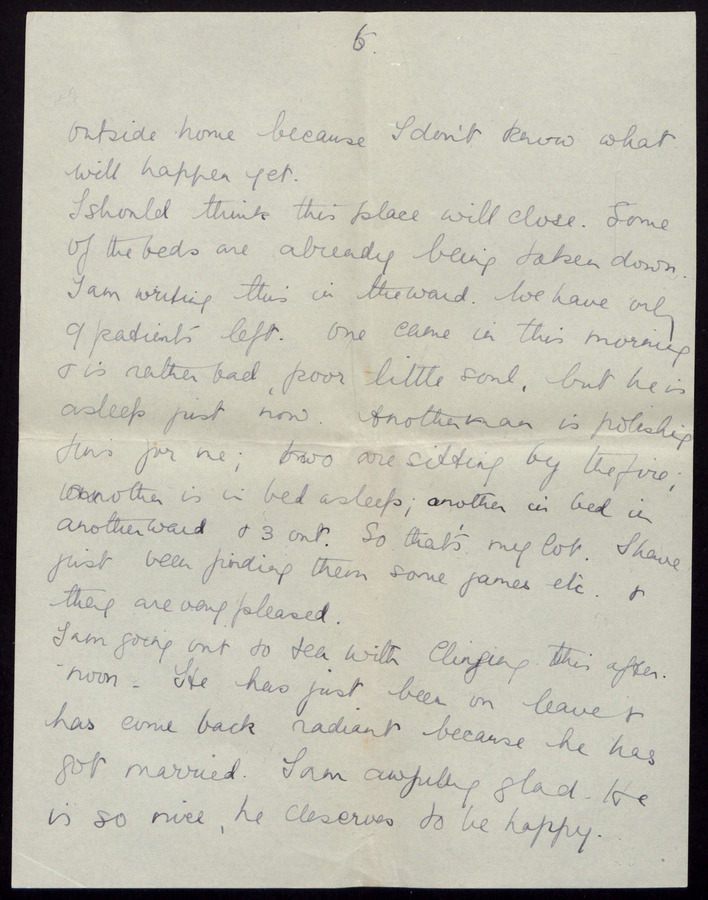 6.
outside home because I don't know what
will happen yet.
I should think this place will close. Some
of the beds are already being taken down.
I am writing this in the ward. We have only
9 patients left. One came in this morning
& is rather bad, poor little soul, but he is
asleep just now. Another man is polishing
tins for me; two are sitting by the fire;
another is in bed asleep; another in bed in
another ward & 3 out. So that's my lot. I have
just been finding them some games etc. &
they are very pleased.
I am going out to tea with this after-
noon - He has just been on leave &
has come back radiant because he has
got married. I am awfully glad. He
is so nice, he deserves to be happy.